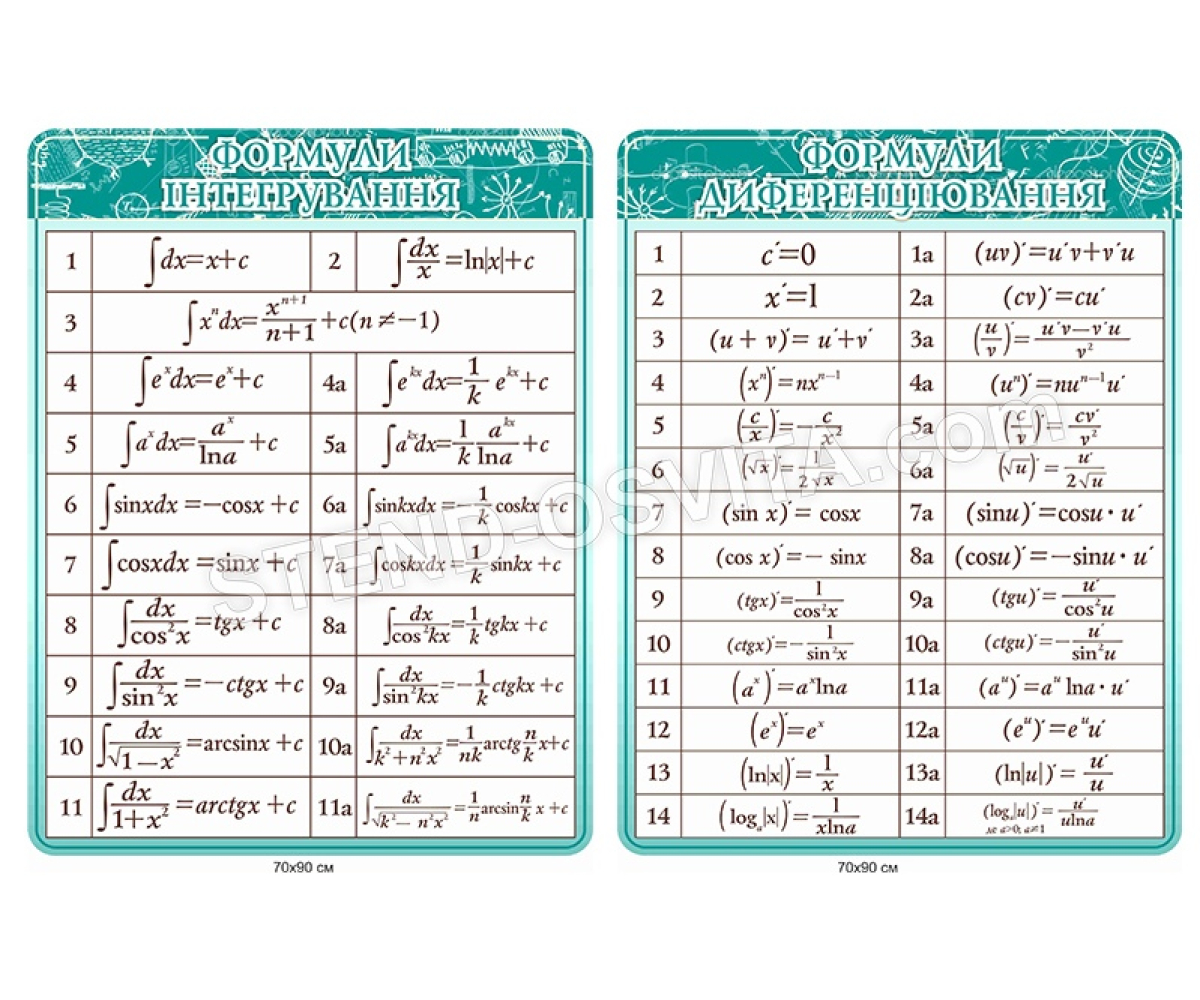 ФОРМУЛИ
ІНТЕГРУВАННЯ
1 ∫dx=x+c 2 ∫dx/x=ln|x|+c
3 ∫xⁿdx=xⁿ⁺¹/n+1+c(n≠−1)
4 ∫eˣdx=eˣ+c 4а ∫eᵏˣdx=1/k eᵏˣ+c
5 ∫aˣdx=aˣ/lna+c 5а ∫aᵏˣdx=1/k aᵏˣ/lna+c
6 ∫sinxdx=−cosx+c 6а ∫sinkxdx=−1/k coskx+c
7 ∫cosxdx=sinx+c 7а ∫coskxdx=1/k sinkx+c
8 ∫dx/cos²x=tgx+c 8а ∫dx/cos²kx=1/k tgkx+c
9 ∫dx/sin²x=−ctgx+c 9а ∫dx/sin²kx=−1/k ctgkx+c
10 ∫dx/√1−x²=arcsinx+c 10а ∫dx/k²+n²x²=1/nk arctg n/k x+c
11 ∫dx/1+x²=arctgx+c 11а ∫dx/√k²−n²x²=1/n arcsin n/k x+c
70х90 см
ФОРМУЛИ
ДИФЕРЕНЦІЮВАННЯ
1 c´=0 1а (uv)´=u´v+v´u
2 x´=1 2а (cv)´=cu´
3 (u + v)´=u´+v´ 3а (u/v)´=u´v−v´u/v²
4 (xⁿ)´=nxⁿ⁻¹ 4а (uⁿ)´=nuⁿ⁻¹u´
5 (c/x)´=−c/x² 5а (c/v)´=cv´/v²
6 (√x)´=1/2√x 6а (√u)´=u´/2√u
7 (sin x)´= cosx 7а (sinu)´=cosu·u´
8 (cos x)´=− sinx 8а (cosu)´=−sinu·u´
9 (tgx)´=1/cos²x 9а (tgu)´=u´/cos²u
10 (ctgx)´=−1/sin²x 10а (ctgu)´=−u´/sin²u
11 (aˣ)´=aˣlna 11а (aᵘ)´=aᵘ lna·u´
12 (eˣ)´=eˣ 12а (eᵘ)´=eᵘu´
13 (ln|x|)´=1/x 13а (ln|u|)´=u´/u
14 (logₐ|x|)´=1/xlna 14а (logₐ|u|)´=u´/ulna
де a>0; a≠1
70х90 см
STEND-OSVITA.com